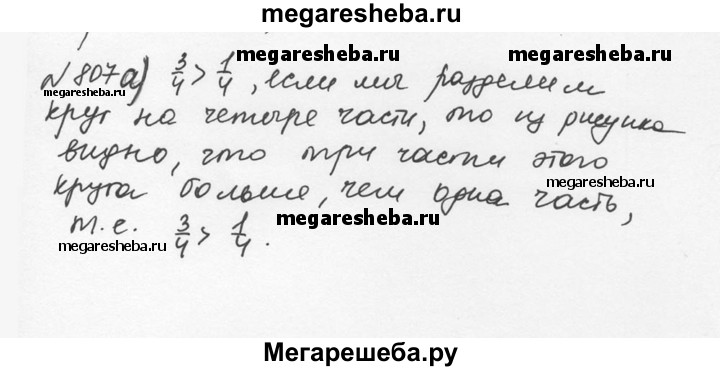 megaresheba.ru
№807а) 3/4 > 1/4, если мы разделим
megaresheba.ru megaresheba.ru
круг на четыре части, то из рисунка
megaresheba.ru
видно, что три части этого
круга больше, чем одна часть,
megaresheba.ru
т.е. 3/4 > 1/4.
megaresheba.ru
megaresheba.ru
Мегарешеба.ру